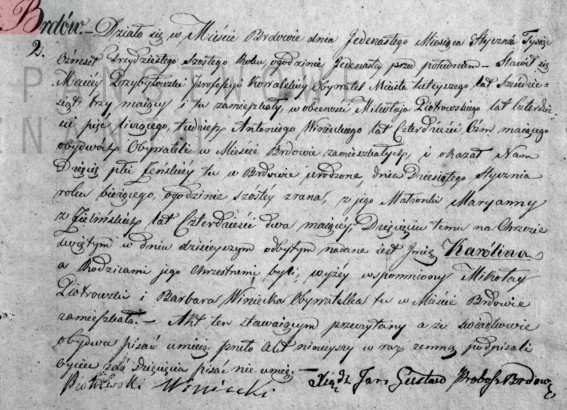 Brdów. Działo się w Mieście Brdowie dnia Jedenastego Miesiąca Stycznia Tysiąc
2. Ośmset Trzydziestego Szóstego Roku, o godzinie Jedenasty przed południem Stawił się
Maciey Przybyłowski Kowalskiey Obywatel Miasta tuteyszego lat
trzy maiący i tu zamieszkały w obecności Mikołaja Piotrowskiego lat Czterdzie-
ści liczącego, tudzież Antoniego Winieckiego lat Czterdzieści Ośm maiącego
obydwóch Obywateli w Mieście Brdowie zamieszkałych, i okazał Nam
Dziecię płci Żeńskiey tu w Brdowie urodzone, dnia Dziesiątego Stycznia
roku bieżącego, o godzinie szóstey zrana, z jego Małżonki Maryanny
z Zielińskich lat Czterdzieści dwa maiącey Dziecięciu temu na Chrzcie
Świętym w dniu dzisieyszym odbytym nadane iest Imię Karolina
a Rodzicami jego Chrzestnemi byli, wyżey wspomniony Mikołay
Piotrowski i Barbara Winiecka Obywatelka tu w Mieście Brdowie
zamieszkała. Akt ten stawaiącym przeczytany a że świadkowie
obydwa pisać umieią Akt ninieyszy w raz zemną podpisali
Oyciec zaś Dziecięcia pisać nie umie.
Piotrowski Winiecki Xiądz Gustaw Brdow